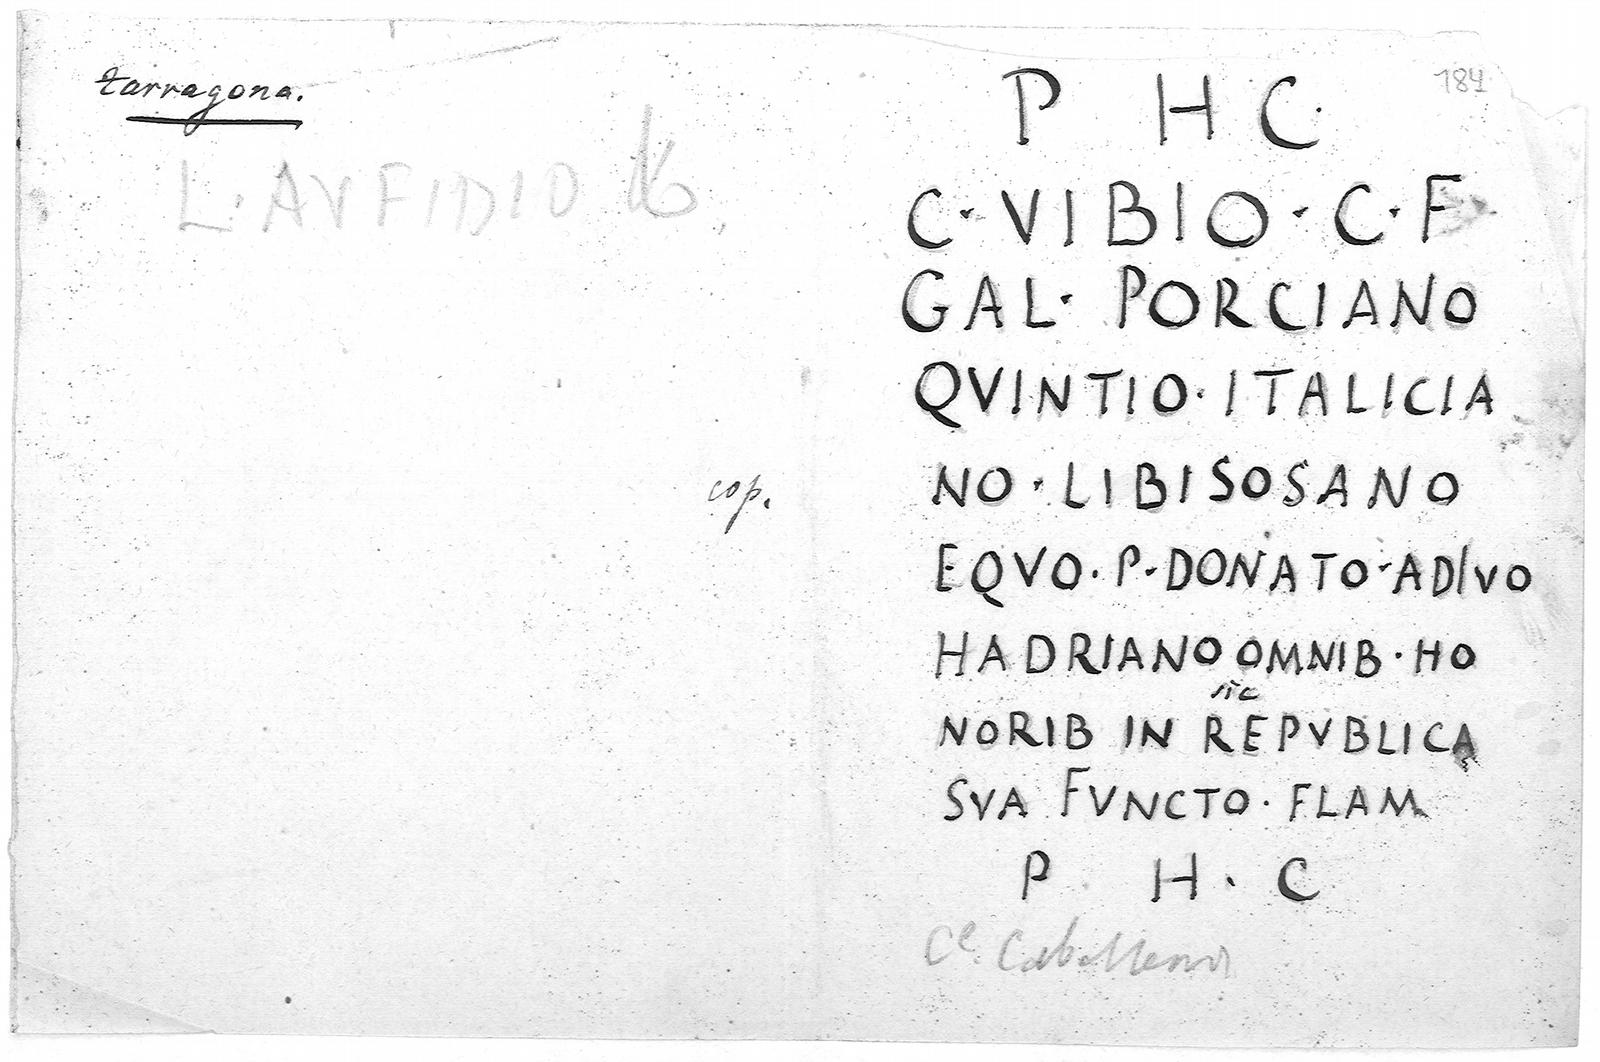 tarragona.
L. AVFIDIO
cop.
184
P H C.
C · VIBIO · C · F
GAL · PORCIANO
QVINTIO · ITALICIA
NO · LIBISOSANO
EQVO · P · DONATO · AD/VO
HADRIANO OMNIB · HO
sic
NORIB IN REPVBLICA
SVA FVNCTO · FLAM
P H · C